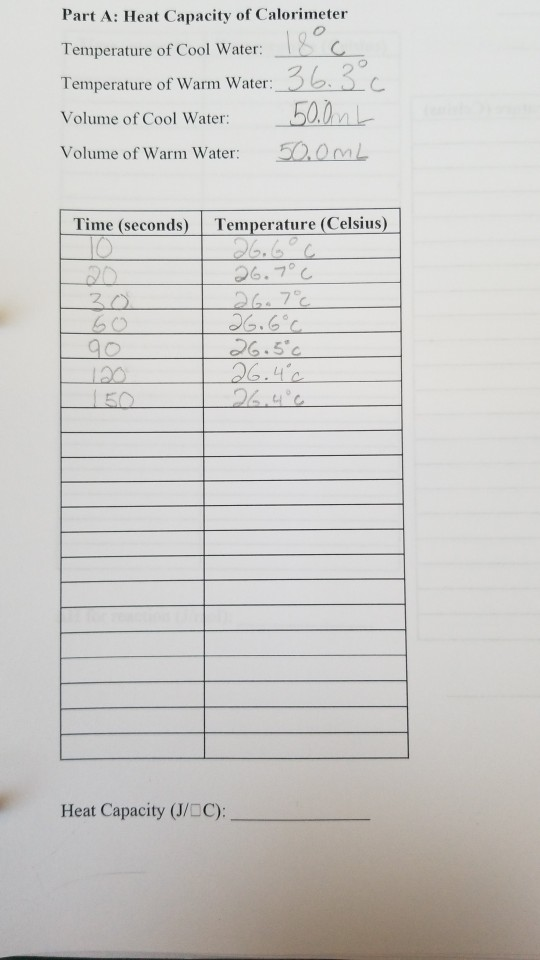 Part A: Heat Capacity of Calorimeter
Temperature of Cool Water: 18°C
Temperature of Warm Water: 36.3°C
Volume of Cool Water: 50.0mL
Volume of Warm Water: 50.0mL
Time (seconds) Temperature (Celsius)
10 26.6°C
20 26.7°C
30 26.7°C
60 26.6°C
90 26.5°C
120 26.4°C
150 26.4°C
Heat Capacity (J/□C):